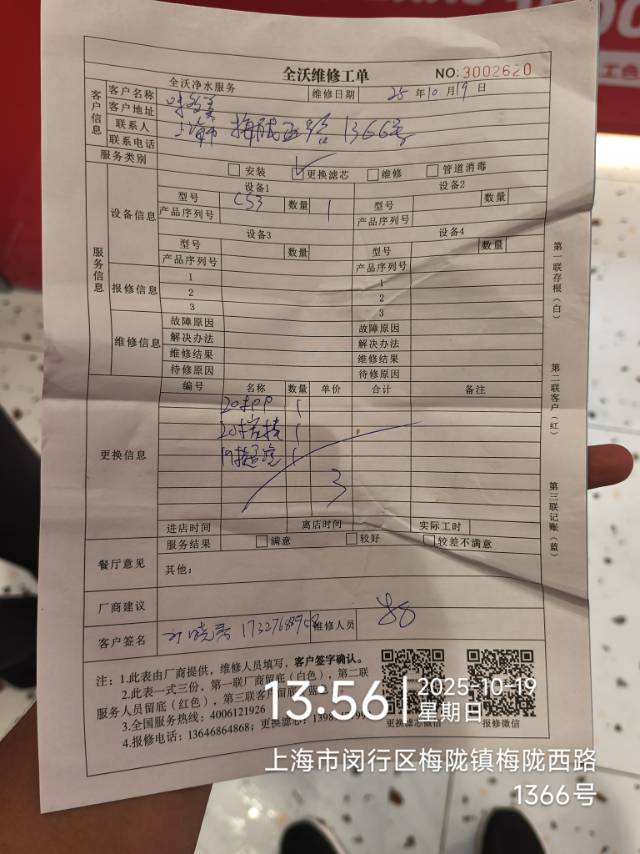 全沃维修工单
NO. 3002620
全沃净水服务
维修日期 25 年 10 月 19 日
客户信息
客户名称
客户地址 上海市 梅陇西路1366号
联系人
联系电话
服务类别 安装 ✓更换滤芯 维修 管道消毒
服务信息
设备信息
设备1 设备2
型号 CS3 数量 1 型号 数量
产品序列号 产品序列号
设备3 设备4
型号 数量 型号 数量
产品序列号 产品序列号
报修信息
1 1
2 2
3 3
维修信息
故障原因 故障原因
解决办法 解决办法
维修结果 维修结果
待修原因 待修原因
更换信息
编号 名称 数量 单价 合计 备注
20寸PP 1
20寸 1
1
3
进店时间 离店时间 实际工时
餐厅意见
服务结果 满意 较好 较差不满意
其他:
厂商建议
客户签名 维修人员
注:1.此表由厂商提供,维修人员填写,客户签字确认。
2.此表一式三份,第一联厂商留底(白色),第二联
服务人员留底(红色),第三联客
3.全国服务热线:4006121926
4.报修电话:13646864868;更换滤芯:
更换滤芯微信 报修微信
第一联存根(白)
第二联客户(红)
第三联记账(蓝)
13:56
2025-10-19
星期日
上海市闵行区梅陇镇梅陇西路
1366号